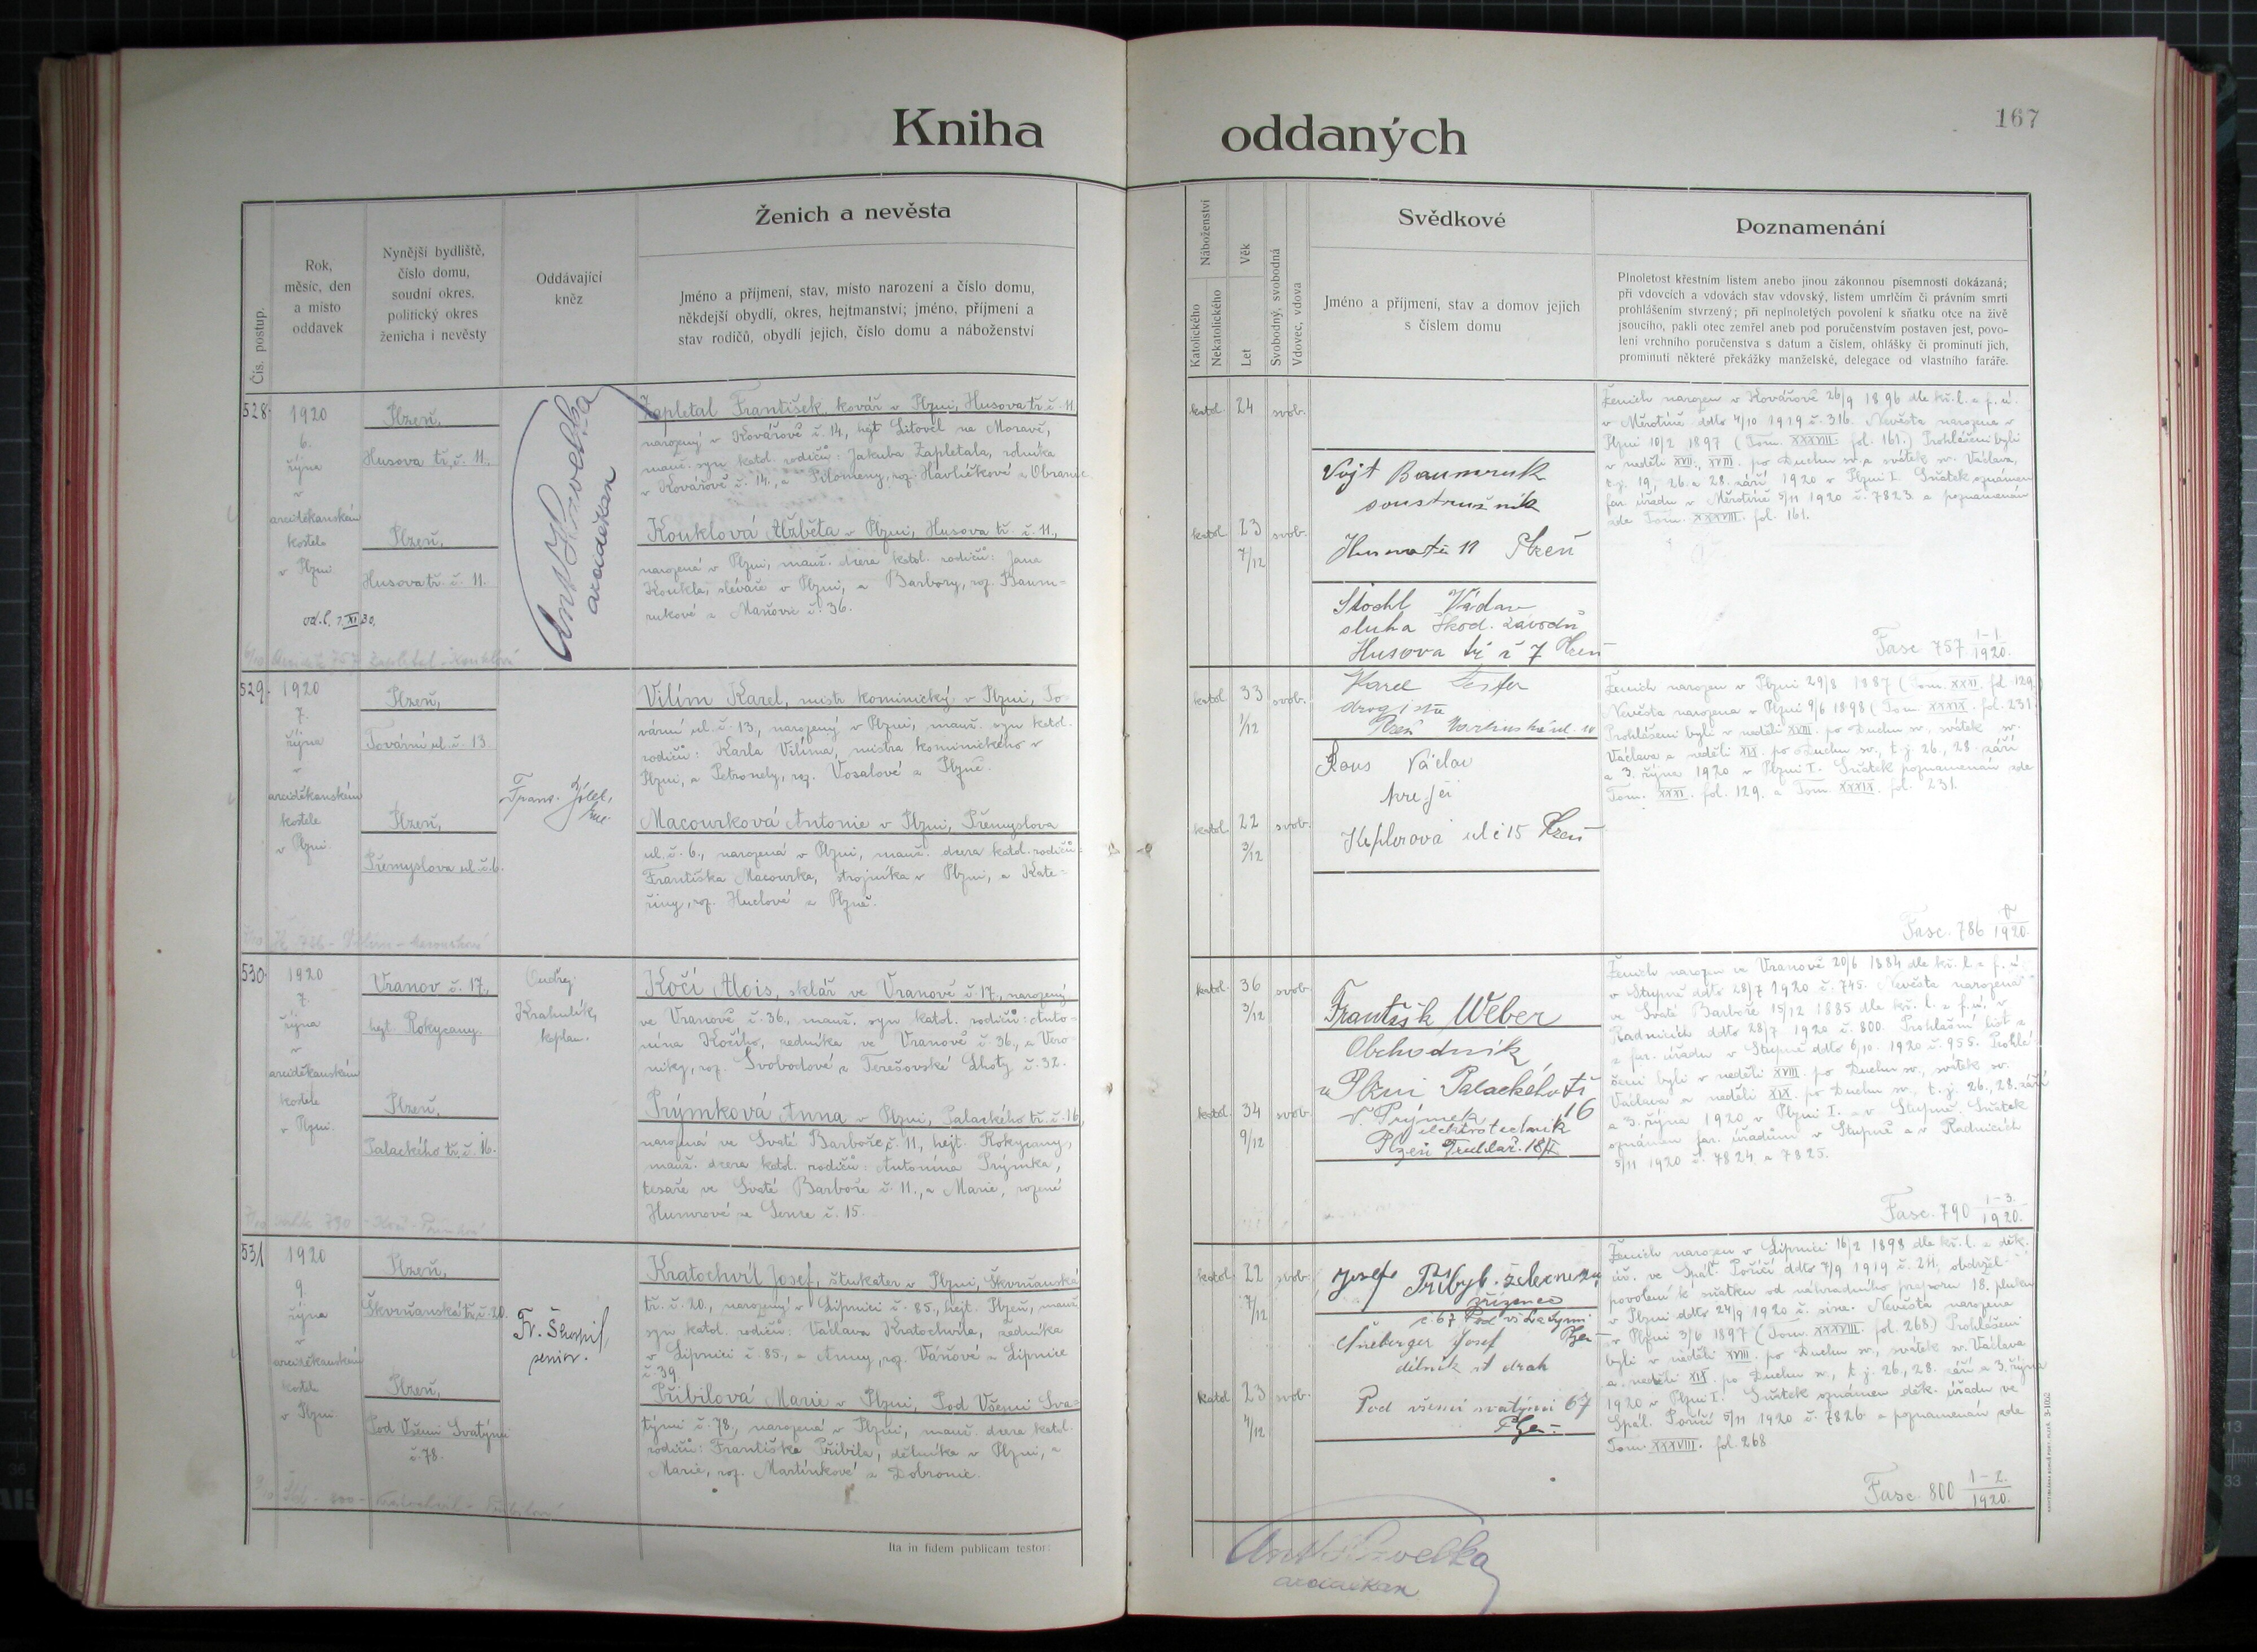 Kniha oddaných
167
Čís. postup.
Rok,
měsíc, den
a místo
oddavek
Nynější bydliště,
číslo domu,
soudní okres.
politický okres
ženicha i nevěsty
Oddávající
kněz
Ženich a nevěsta
Jméno a příjmení, stav, místo narození a číslo domu,
někdejší obydlí, okres, hejtmanství; jméno, příjmení a
stav rodičů, obydlí jejich, číslo domu a náboženství
Náboženství
Katolického
Nekatolického
Věk
Let
Svobodný, svobodná
Vdovec, vdova
Svědkové
Jméno a příjmení, stav a domov jejich
s číslem domu
Poznamenání
Plnoletost křestním listem anebo jinou zákonnou písemností dokázaná;
při vdovcích a vdovách stav vdovský, listem umrlčím či právním smrti
prohlášením stvrzený; při neplnoletých povolení k sňatku otce na živě
jsoucího, pakli otec zemřel aneb pod poručenstvím postaven jest, povo-
lení vrchního poručenstva s datum a číslem, ohlášky či prominutí jich,
prominutí některé překážky manželské, delegace od vlastního faráře.
528.
1920
6.
října
v
arciděkanském
kostele
v Plzni
Plzeň,
Husova tř. č. 11.
Plzeň,
Husova tř. č. 11.
Ant. Havelka
arciděkan
Zapletal František, kovář v Plzni, Husova tř. č. 11.
narozený v Kovářově č. 14, hejt Litovel na Moravě,
manž. syn katol. rodičů: Jakuba Zapletala, rolníka
v Kovářově č. 14., a Filomeny, roz. Havlíčkové z Obranic
Kouklová Alžběta v Plzni, Husova tř. č. 11.,
narozená v Plzni, manž. dcera katol. rodičů: Jana
Koukla, slévače v Plzni, a Barbory, roz. Baum-
rukové z Maňovic č. 36.
katol. 24 svob.
katol. 23 7/12 svob.
Vojt Baumruk
soustružník
Husova tř 11 Plzeň
Stochl Václav
sluha škod. závodů
Husova tř č 7 Plzeň
Ženich narozen v Kovářově 26/9 1896 dle kř. l. z f. ú.
v Měrotíně ddto 4/10 1919 č. 316. Nevěsta narozena v
Plzni 10/2 1897 (Tom. XXXVIII. fol. 161.) Prohlášeni byli
v neděli XVII., XVIII. po Duchu sv. a svátek sv. Václava,
t. j. 19, 26. a 28. září 1920 v Plzni I. Sňatek oznámen
far. úřadu v Měrotíně 5/11 1920 č. 7823. a poznamenán
zde Tom. XXXVIII. fol. 161.
Fasc 757 1-1./1920.
529.
1920
7.
října
v
arciděkanském
kostele
v Plzni
Plzeň,
Tovární ul. č. 13.
Plzeň,
Přemyslova ul. č. 6.
Vilím Karel, mistr kominický v Plzni, To-
vární ul. č. 13., narozený v Plzni, manž. syn katol.
rodičů: Karla Vilíma, mistra kominického v
Plzni, a Petronely, roz. Vosalové z Plzně.
Macourková Antonie v Plzni, Přemyslova
ul. č. 6., narozená v Plzni, manž. dcera katol. rodičů:
Františka Macourka, strojníka v Plzni, a Kate-
řiny, roz. Huclové z Plzně.
katol. 33 1/12 svob.
katol. 22 3/12 svob.
Karel
drogista
Plzeň
Rous Václav
krejčí
Keplerova ul č 15 Plzeň
Ženich narozen v Plzni 29/8 1887 (Tom. XXXI. fol. 129.)
Nevěsta narozena v Plzni 9/6 1898 (Tom XXXIX. fol. 231.)
Prohlášeni byli v neděli XVIII. po Duchu sv., svátek sv.
Václava a neděli XIX. po Duchu sv., t. j. 26., 28. září
a 3. října 1920 v Plzni I. Sňatek poznamenán zde
Tom. XXXI. fol. 129. a Tom. XXXIX. fol. 231.
Fasc. 786 1920.
530.
1920
7.
října
v
arciděkanském
kostele
v Plzni
Vranov č. 17,
hejt. Rokycany.
Plzeň,
Palackého tř. č. 16.
Ondřej
Krahulík,
kaplan.
Kočí Alois, sklář ve Vranově č. 17., narozený
ve Vranově č. 36., manž. syn katol. rodičů: Anto-
nína Kočího, zedníka ve Vranově č. 36., a Vero-
niky, roz. Svobodové z Terešovské Lhoty č. 32.
Prýmková Anna v Plzni, Palackého tř. č. 16,
narozená ve Svaté Barboře č. 11, hejt. Rokycany,
manž. dcera katol. rodičů: Antonína Prýmka,
tesaře ve Svaté Barboře č. 11., a Marie, rozené
č. 15.
katol. 36 3/12 svob.
katol. 34 9/12 svob.
František Weber
Obchodník
v Plzni Palackého tř
16
V. Prýmek
elektrotechnik
Plzeň Truhlář. 18/II
Ženich narozen ve Vranově 20/6 1884 dle kř. l. z f. ú.
v Stupně ddto 28/7 1920 č. 745. Nevěsta narozena
ve Svaté Barboře 15/12 1885 dle kř. l. z f. ú. v
Radnicích ddto 28/7 1920 č. 800. Prohlašní list z
z far. úřadu v Stupně ddto 6/10. 1920 č. 955. Prohlá-
šeni byli v neděli XVIII. po Duchu sv., svátek sv.
Václava a neděli XIX. po Duchu sv., t. j. 26., 28. září
a 3. října 1920 v Plzni I. a v Stupně. Sňatek
oznámen far. úřadům v Stupně a v Radnicích
5/11 1920 č. 7824 a 7825.
Fasc. 790 1-3./1920.
531
1920
9.
října
v
arciděkanském
kostele
v Plzni
Plzeň,
Škvrňanská tř. č. 20.
Plzeň,
Pod Všemi Svatými
č. 78.
senior.
Kratochvíl Josef, štukater v Plzni, Škvrňanská
tř. č. 20., narozený v Lipnici č. 85., hejt. Plzeň, manž.
syn katol. rodičů: Václava Kratochvíla, zedníka
v Lipnici č. 85., a Anny, roz. Váňové z Lipnice
č. 39.
Přibilová Marie v Plzni, Pod Všemi Sva-
tými č. 78, narozená v Plzni, manž. dcera katol.
rodičů: Františka Přibila, dělníka v Plzni, a
Marie, roz. Martínkové z Dobronic.
katol. 22 7/12 svob.
katol. 23 4/12 svob.
Josef Přibyl
zřízenec
č. 67 Pod vš. svatými
Plzeň
Josef
dělník st drah
Pod všemi svatými 67
Plzeň
Ženich narozen v Lipnici 16/2 1898 dle kř. l. z děk.
úř. ve Spál. Poříčí ddto 7/9 1919 č. 211, obdržel
povolení k sňatku od náhradního praporu 18. pluku
v Plzni ddto 24/9 1920 č. sine. Nevěsta narozena
v Plzni 3/6 1897 (Tom. XXXVIII. fol. 268) Prohlášeni
byli v neděli XVIII. po Duchu sv., svátek sv. Václava
a neděli XIX. po Duchu sv., t. j. 26., 28. září a 3. října
1920 v Plzni I. Sňatek oznámen děk. úřadu ve
Spál. Poříčí 5/11 1920 č. 7826 a poznamenán zde
Tom. XXXVIII. fol. 268
Fasc. 800 1-2./1920.
Ita in fidem publicam testor:
Ant. Havelka
arciděkan